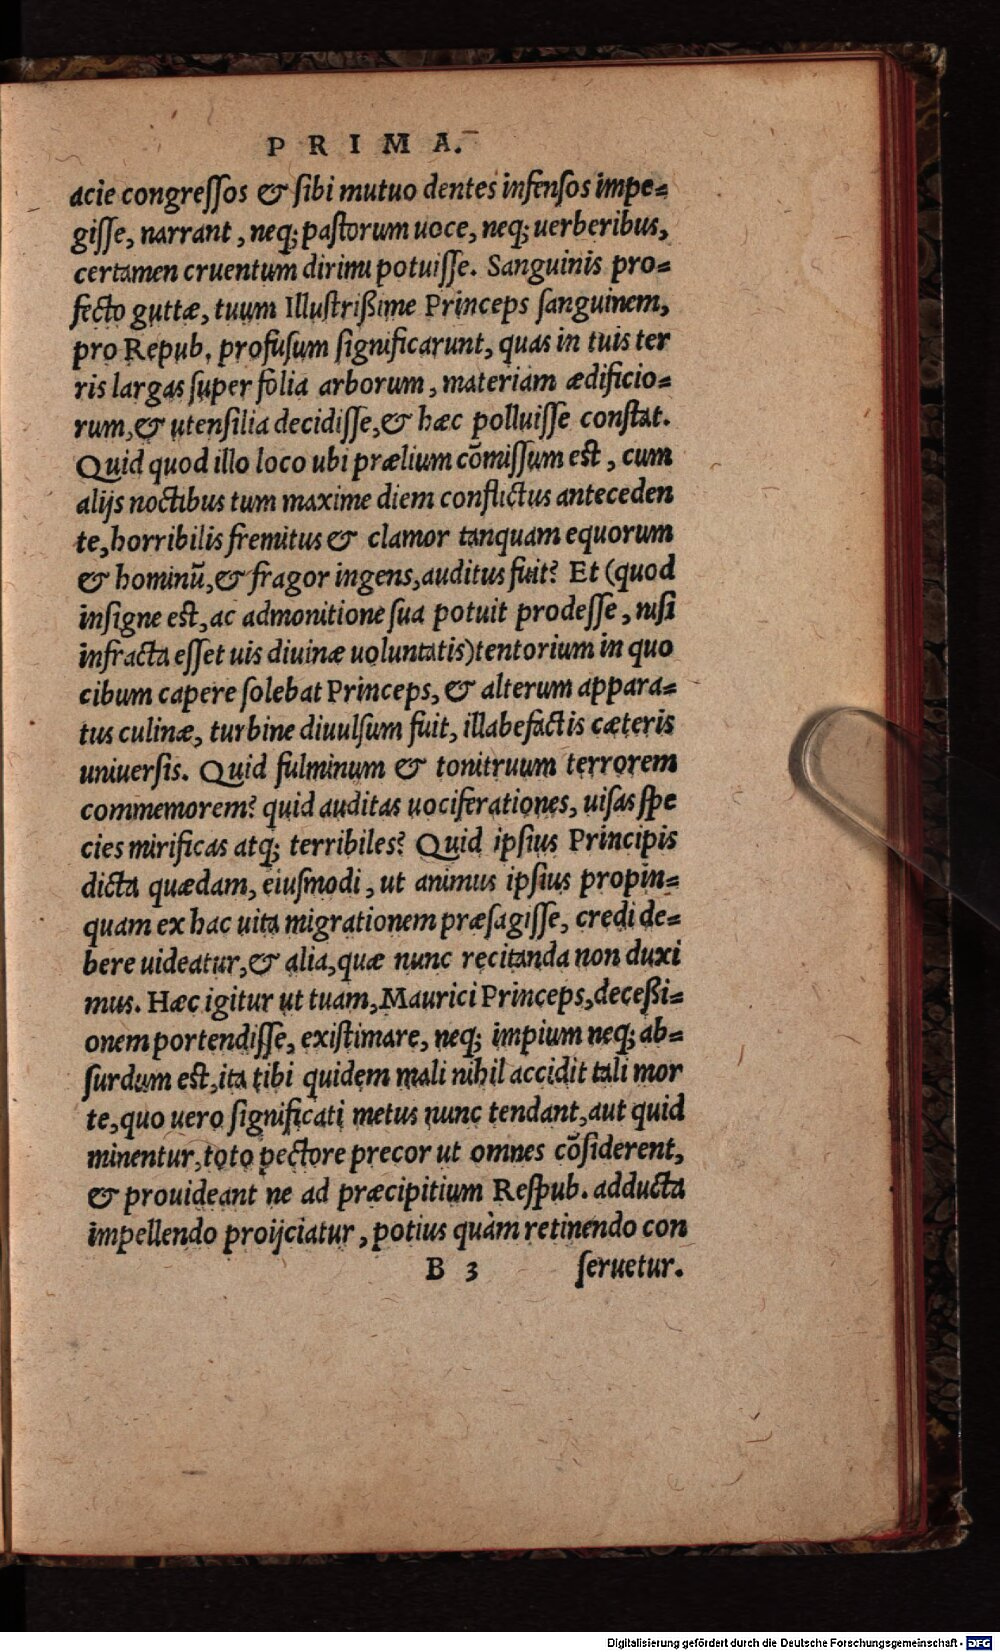 PRIMA.
acie congressos & sibi mutuo dentes infensos impe=
gisse, narrant, neq; pastorum uoce, neq; uerberibus,
certamen cruentum dirimi potuisse. Sanguinis pro=
fecto guttæ, tuum Illustrißime Princeps sanguinem,
pro Repub. profusum significarunt, quas in tuis ter
ris largas super folia arborum, materiam ædificio=
rum, & utensilia decidisse, & hæc polluisse constat.
Quid quod illo loco ubi prælium cōmissum est, cum
alijs noctibus tum maxime diem conflictus anteceden
te, horribilis fremitus & clamor tanquam equorum
& hominū, & fragor ingens, auditus fuit? Et (quod
insigne est, ac admonitione sua potuit prodesse, nisi
infracta esset uis diuinæ uoluntatis) tentorium in quo
cibum capere solebat Princeps, & alterum appara=
tus culinæ, turbine diuulsum fuit, illabefactis cæteris
uniuersis. Quid fulminum & tonitruum terrorem
commemorem? quid auditas uociferationes, uisas spe
cies mirificas atq; terribiles? Quid ipsius Principis
dicta quædam, eiusmodi, ut animus ipsius propin=
quam ex hac uita migrationem præsagisse, credi de=
bere uideatur, & alia, quæ nunc recitanda non duxi
mus. Hæc igitur ut tuam, Maurici Princeps, deceßi=
onem portendisse, existimare, neq; impium neq; ab=
surdum est, ita tibi quidem mali nihil accidit tali mor
te, quo uero significati metus nunc tendant, aut quid
minentur, toto pectore precor ut omnes cōsiderent,
& prouideant ne ad præcipitium Respub. adducta
impellendo proijciatur, potius quàm retinendo con
B 3 seruetur.
Digitalisierung gefördert durch die Deutsche Forschungsgemeinschaft - DFG